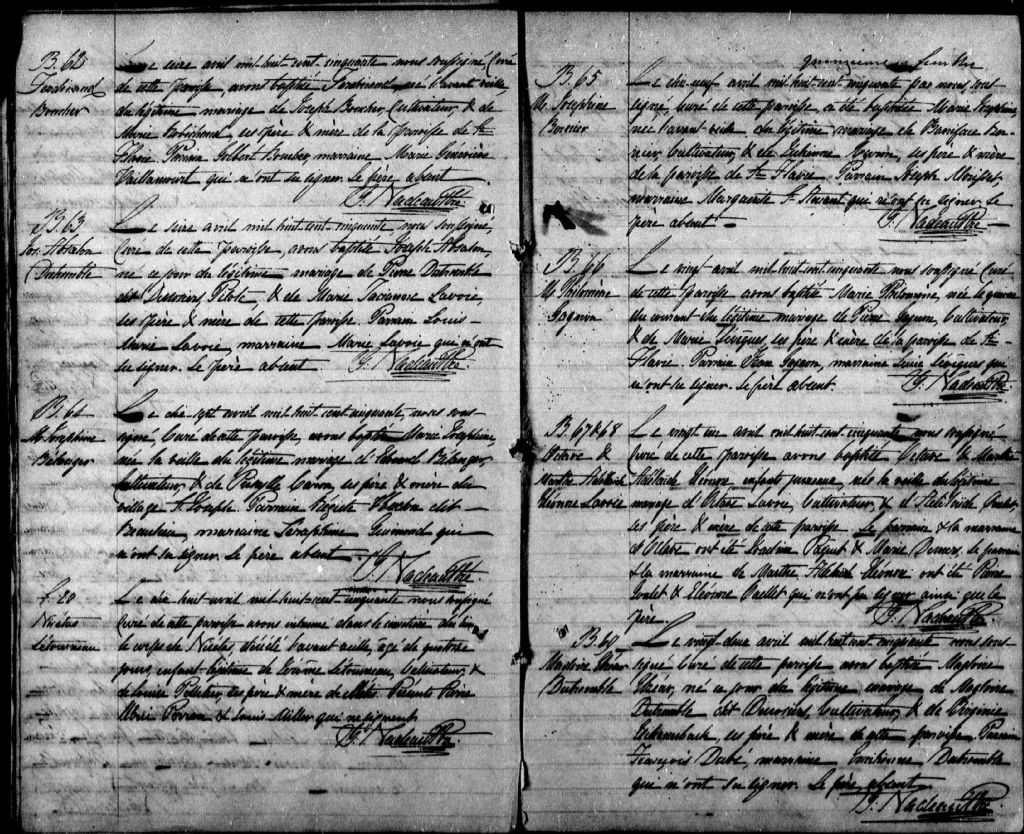 B. 62
Ferdinand
Boucher
Le seize avril mil-huit-cent cinquante nous soussigné Curé
de cette paroisse, avons baptisé Ferdinand, né l'avant veille
du légitime mariage de Joseph Boucher, Cultivateur, & de
Marie ses père & mère de la paroisse de Ste
Flavie Parrain Gilbert Boucher, marraine Marie Geneviève
Vaillancourt qui n'ont su signer. Le père absent
G. Nadeau Ptre
B. 63
Jos. Absalon
Dutremble
Le seize avril mil huit cent cinquante nous soussigné,
Curé de cette paroisse, avons baptisé Joseph Absalon,
né ce jour du légitime mariage de Pierre Dutremble
dit Desrosiers Pilote, & de Marie Lavoie,
ses père & mère de cette paroisse. Parrain Louis-
Marie Lavoie, marraine Marie Lavoie qui n'ont
su signer. Le père absent
G. Nadeau Ptre
B. 64
M. Josephine
Bélanger
Le dix-sept avril mil huit cent cinquante, nous sous-
signé Curé de cette paroisse, avons baptisé Marie Josephine,
née la veille du légitime mariage d'Edouard Bélanger,
Cultivateur, & de Caron, ses père & mère du
village St Joseph Parrain dit
Beaulieu, marraine Séraphine qui
n'ont su signer. Le père absent
G. Nadeau Ptre
S. 20
Nicolas
Létourneau
Le dix huit avril mil huit-cent cinquante nous soussigné
Curé de cette paroisse avons inhumé dans le cimetière du lieu
le corps de Nicolas, décédé l'avant veille, âgé de quatre
jours, enfant légitime de Létourneau Cultivateur, &
de Louise Pelletier, ses père & mère de Métis Présents Pierre
& Louis Miller qui ne signent
G. Nadeau Ptre
B 65
M. Josephine
Bernier
Le dix-neuf avril mil huit cent cinquante par nous sous-
signé, Curé de cette paroisse a été baptisée Marie Josephine,
née l'avant veille du légitime mariage de Boniface Ber-
nier, Cultivateur, & de Caron, ses père & mère
de la paroisse de Ste Flavie Parrain Joseph
marraine Marguerite St Laurent qui n'ont su signer. Le
père absent
G. Nadeau Ptre
B 66
M. Philomène
Gagnon
Le vingt avril mil huit cent cinquante nous soussigné Curé
de cette paroisse avons baptisé Marie Philomène, née le quinze
du courant du légitime mariage de Pierre Gagnon, Cultivateur,
& de Marie Lévêques, ses père & mère de la paroisse de Ste
Flavie Parrain Jean Gagnon, marraine Lévêques qui
n'ont su signer. Le père absent
G. Nadeau Ptre
B 67 & 68
Octave &
Marthe Adélaïde
Eléonore Lavoie
Le vingt un avril mil huit cent cinquante nous soussigné
Curé de cette paroisse avons baptisé Octave & Marthe
Adélaïde Eléonore, enfants jumeaux nés la veille du légitime
mariage d'Octave Lavoie, Cultivateur, & d'Adélaïde
ses père & mère de cette paroisse Le parrain & la marraine
d'Octave ont été Paquet & Marie Demers. Le parrain
& la marraine de Marthe Adélaïde Eléonore ont été Pierre
& Eléonore Ouellet qui n'ont su signer ainsi que le
père.
G. Nadeau Ptre
B. 69
Magloire
Dutremble
Le vingt-deux avril mil huit cent cinquante nous sous-
signé Curé de cette paroisse avons baptisé Magloire
né ce jour du légitime mariage de Magloire
Dutremble dit Desrosiers, Cultivateur, & de Virginie
ses père & mère de cette paroisse. Parrain
François Dubé, marraine Dutremble
qui n'ont su signer. Le père absent
G. Nadeau Ptre